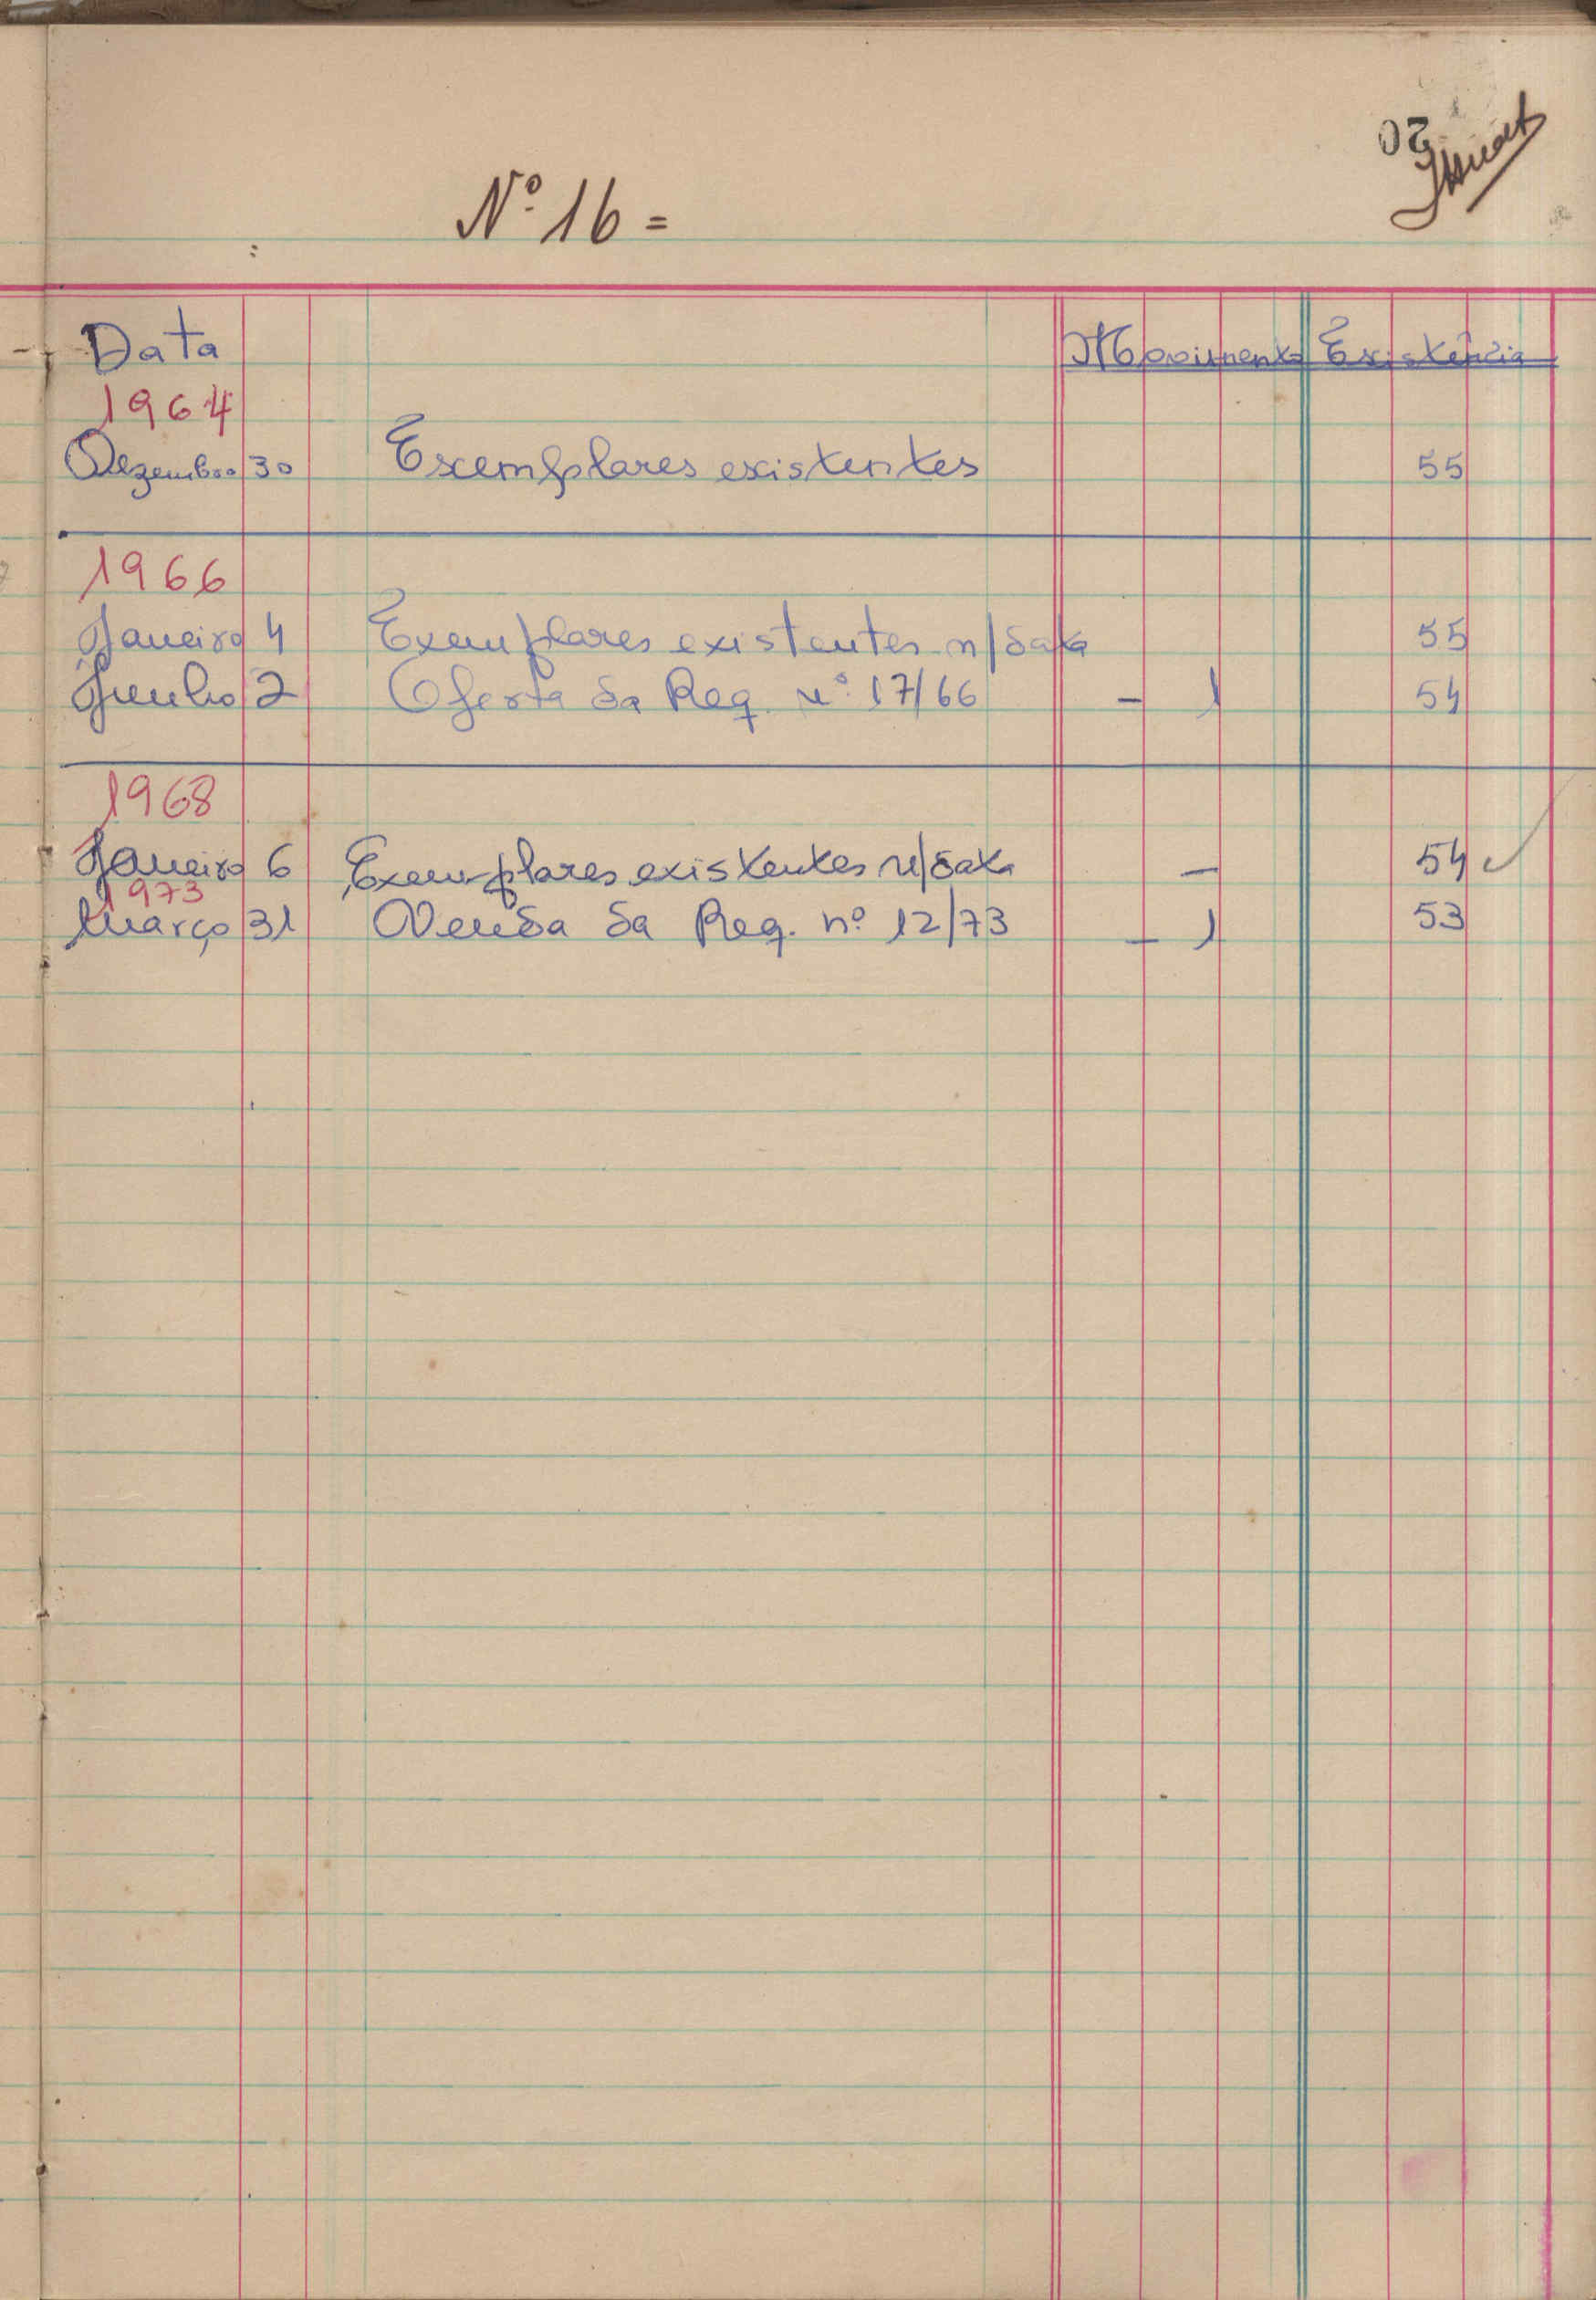 20
Nº 16 =
Data Movimento Existência
1964
Dezembro 30 Exemplares existentes 55
1966
Janeiro 4 Exemplares existentes n/data 55
Junho 2 Oferta da Req. nº 17/66 - 1 54
1968
Janeiro 6 Exemplares existentes n/data — 54 ✓
1973
Março 31 Venda da Req. nº 12/73 - 1 53